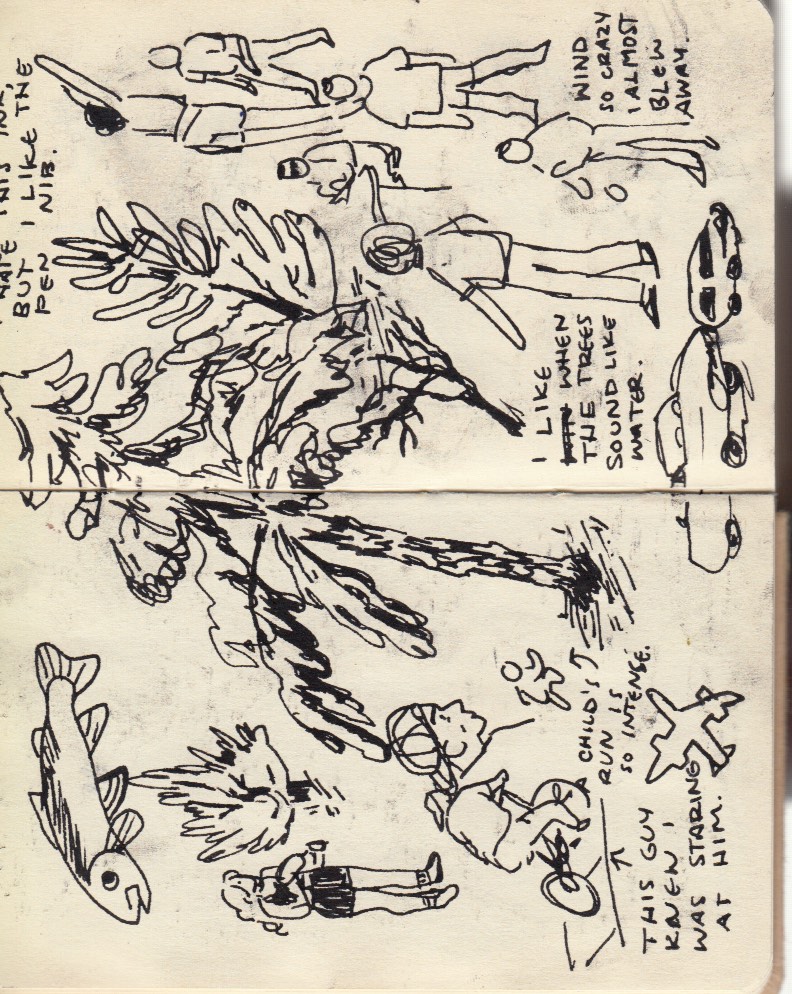 A CHILD'S
RUN IS
SO INTENSE.
THIS GUY
KNEW I
WAS STARING
AT HIM.
HATE THIS INK,
BUT I LIKE THE
PEN NIB.
I LIKE
WHEN
THE TREES
SOUND LIKE
WATER.
WIND
SO CRAZY
I ALMOST
BLEW
AWAY.